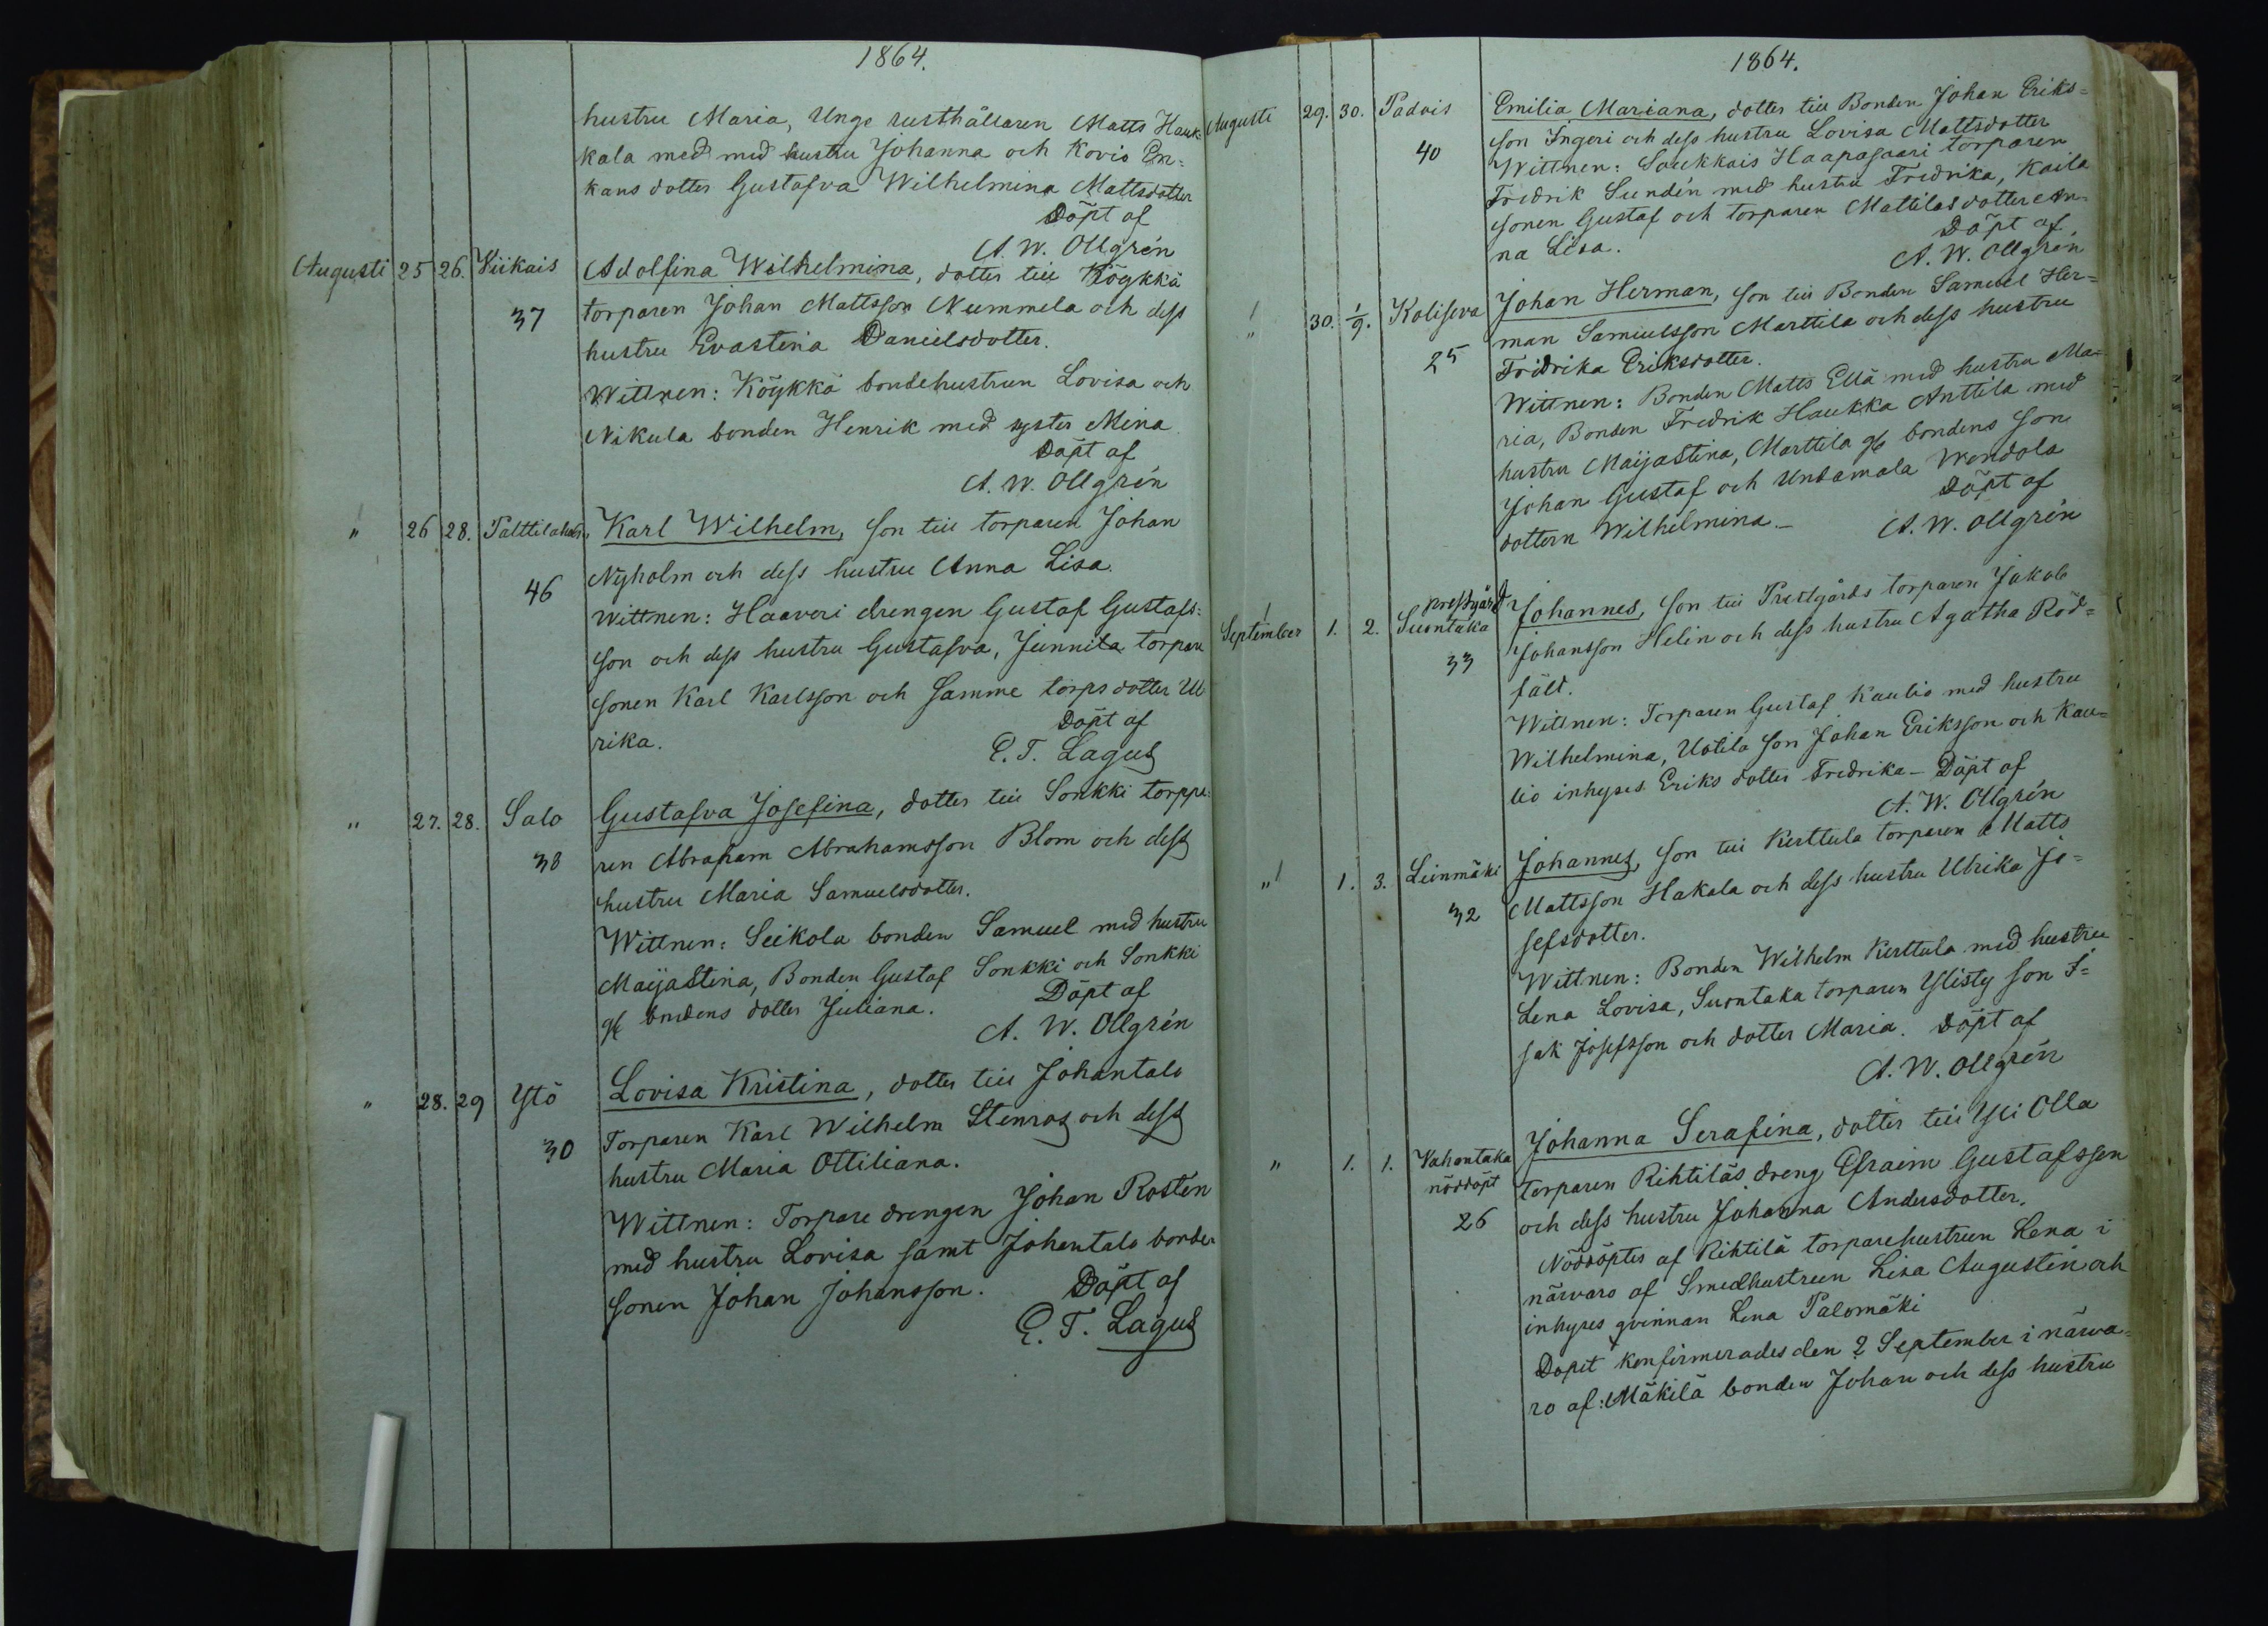 1864.
hustru Maria, Unge rusthållaren Matts Hauk-
kala med med hustru Johanna och Kovio En=
kans dotter Gustafva Wilhelmina Mattsdotter
Döpt af
A. W. Ollgrén
Augusti 25 26. Viikais Adolfina Wilhelmina, dotter till Köykkä
37 torparen Johan Mattsson Nummela och dess
hustru Evastina Danielsdotter.
Wittnen: Köykkä bondehustrun Lovisa och
Nikula bonden Henrik med syster Mina
Döpt af
A. W. Ollgrén
" 26 28. Palttilahar. Karl Wilhelm, son till torparen Johan
46 Nyholm och dess hustru Anna Lisa.
Wittnen: Haaveri drengen Gustaf Gustafs=
son och dess hustru Gustafva, Junnila torpare
sonen Karl Karlsson och samme torps dotter Ul
rika.
Döpt af
E. T. Lagus
" 27. 28. Salo Gustafva Josefina, dotter till Sonkki torppa=
38 ren Abraham Abrahamsson Blom och dess
hustru Maria Samuelsdotter.
Wittnen: Seikola bonden Samuel med hustru
Maijastina, Bonden Gustaf Sonkki och Sonkki
gl bondens dotter Juliana.
Döpt af
A. W. Ollgrén
" 28. 29 Ytö Lovisa Kristina, dotter till Johantalo
30 Torparen Karl Wilhelm Stenros och dess
hustru Maria Ottiliana.
Wittnen: Torpare drengen Johan Rostén
med hustru Lovisa samt Johantalo bonde=
sonen Johan Johansson.
Döpt af
E. T. Lagus
1864.
Augusti 29. 30. Padois Emilia Mariana, dotter till Bonden Johan Eriks=
40 son Ingeri och dess hustru Lovisa Mattsdotter
Wittnen: Saukkais Haapasaari torparen
Fredrik Sundén med hustru Fredrika, Kaila
sonen Gustaf och torparen Mattilas dotter An=
na Lisa.
Döpt af
A. W. Ollgrén
" 30. 1/9. Koliseva Johan Herman, son till Bonden Samuel Her=
25 man Samuelsson Marttila och dess hustru
Fredrika Eriksdotter.
Wittnen: Bonden Matts Ellä med hustru Ma=
ria, Bonden Fredrik Haukka Anttila med
hustru Maijastina, Marttila gl bondens son
Johan Gustaf och Undamala Wendola
dottern Wilhelmina.-
Döpt af
A. W. Ollgrén
September 1. 2. Prestgård Suontaka Johannes, son till Prestgårds torparen Jakob
33 Johansson Helin och dess hustru Agatha Röd=
fält.
Wittnen: Torparen Gustaf Kaulio med hustru
Wilhelmina, Uotila son Johan Eriksson och Kau=
lio inhyses Eriks dotter Fredrika - Döpt af
A. W. Ollgrén
" 1. 3. Leinmäki Johannes, son till Kerttula torparen Matts
32 Mattsson Hakala och dess hustru Ulrika Jo=
sefsdotter.
Wittnen: Bonden Wilhelm Kerttula med hustru
Lena Lovisa, Suontaka torparen Ylisty son I=
sak Josefsson och dotter Maria. Döpt af
A. W. Ollgrén
" 1. 1. Vahantaka Johanna Serafina, dotter till Yli Olla
nöddöpt torparen Rihtiläs dreng Efraim Gustafsson
26 och dess hustru Johanna Andersdotter.
Nöddöptes af Rihtilä torparehustrun Lena i
närvaro af Smedhustrun Lisa Augustin och
inhyses qvinnan Lena Palomäki
Dopet konfirmerades den 2 September i närva=
ro af: Mäkilä bonden Johan och dess hustru